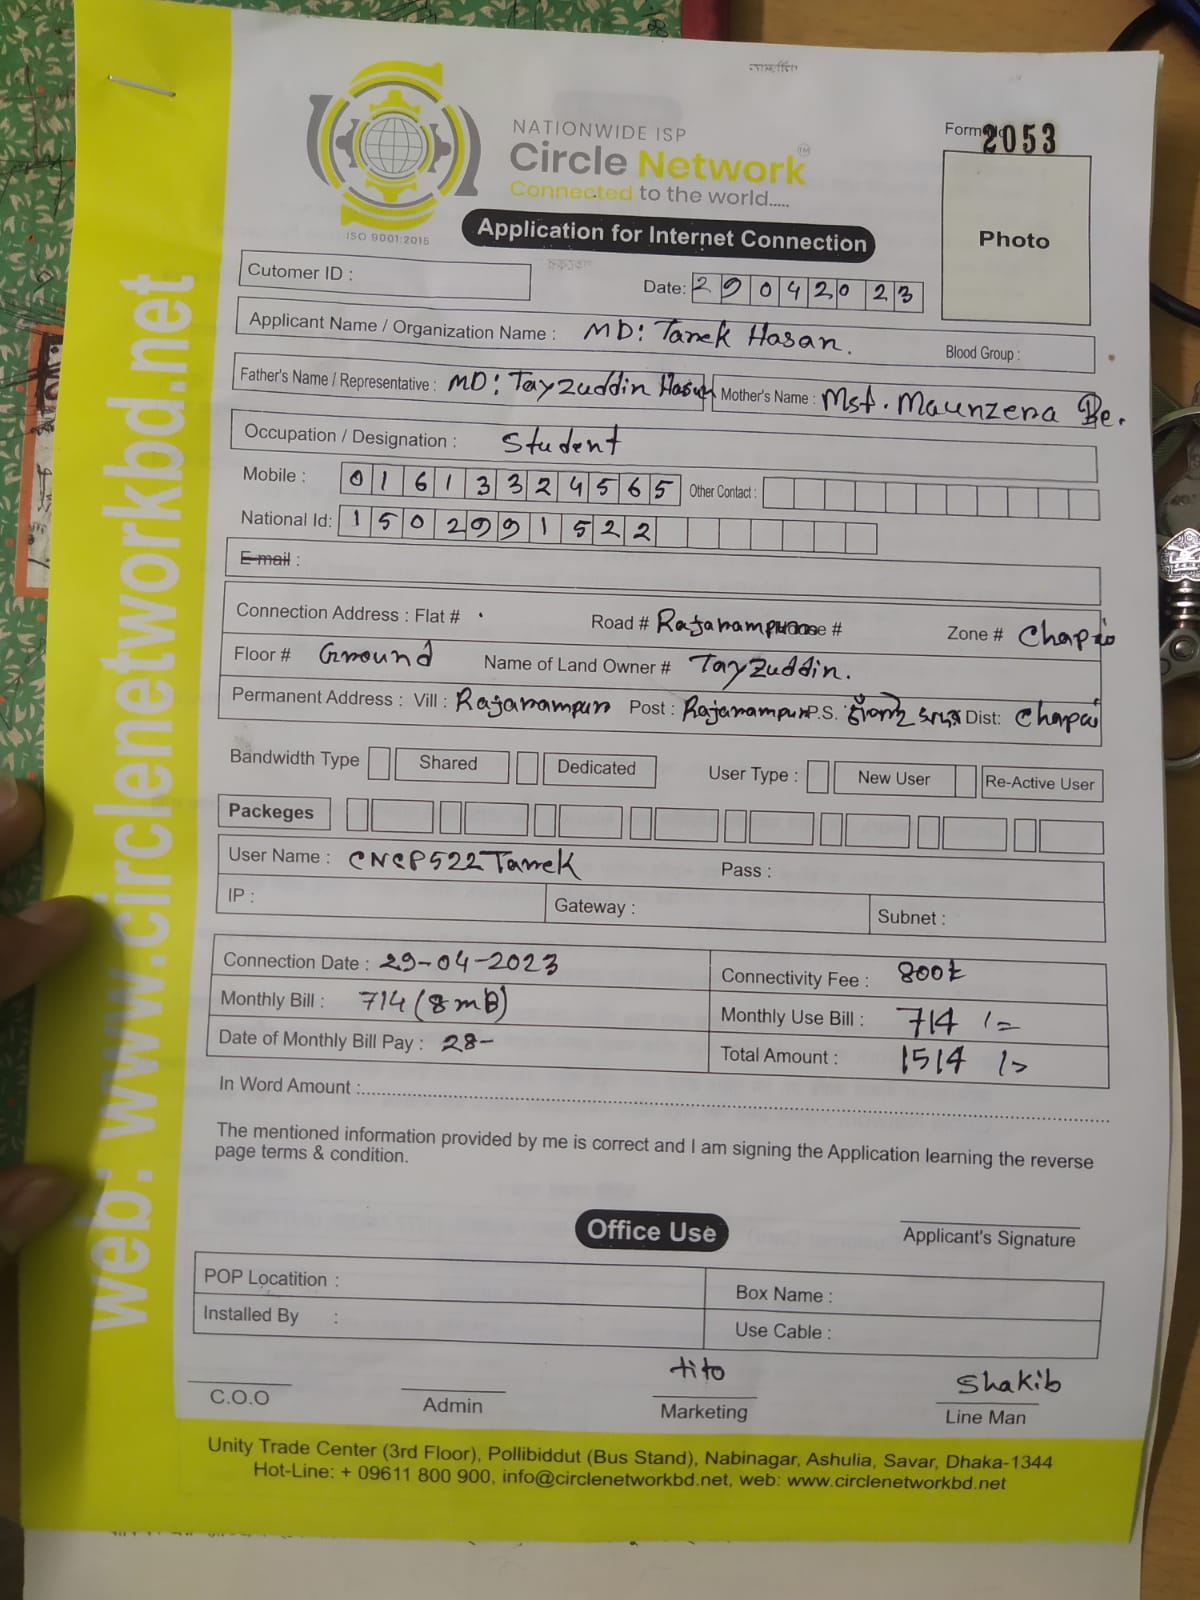 NATIONWIDE ISP
Circle Network TM
Connected to the world.....
ISO 9001:2015
Form 2053
Photo
Application for Internet Connection
Cutomer ID :
Date: 29042023
Applicant Name / Organization Name : MD: Tarek Hasan.
Blood Group :
Father's Name / Representative : MD: Tayzuddin Hasan
Mother's Name : Mst. Maunzera Be.
Occupation / Designation : Student
Mobile : 01613324565 Other Contact :
National Id: 1502991522
E-mail :
Connection Address : Flat # Road # Rajarampur #
Zone # Chapai
Floor # Ground Name of Land Owner # Tayzuddin.
Permanent Address : Vill : Rajarampur Post : Rajarampur P.S. Dist: Chapai
Bandwidth Type Shared Dedicated User Type : New User Re-Active User
Packeges
User Name : CNCP522Tarek Pass :
IP : Gateway : Subnet :
Connection Date : 29-04-2023 Connectivity Fee : 800৳
Monthly Bill : 714 (8 mB) Monthly Use Bill : 714 /=
Date of Monthly Bill Pay : 28- Total Amount : 1514 /=
In Word Amount :
The mentioned information provided by me is correct and I am signing the Application learning the reverse
page terms & condition.
Applicant's Signature
Office Use
POP Locatition : Box Name :
Installed By : Use Cable :
tito Shakib
C.O.O Admin Marketing Line Man
Unity Trade Center (3rd Floor), Pollibiddut (Bus Stand), Nabinagar, Ashulia, Savar, Dhaka-1344
Hot-Line: + 09611 800 900, info@circlenetworkbd.net, web: www.circlenetworkbd.net
web: www.circlenetworkbd.net